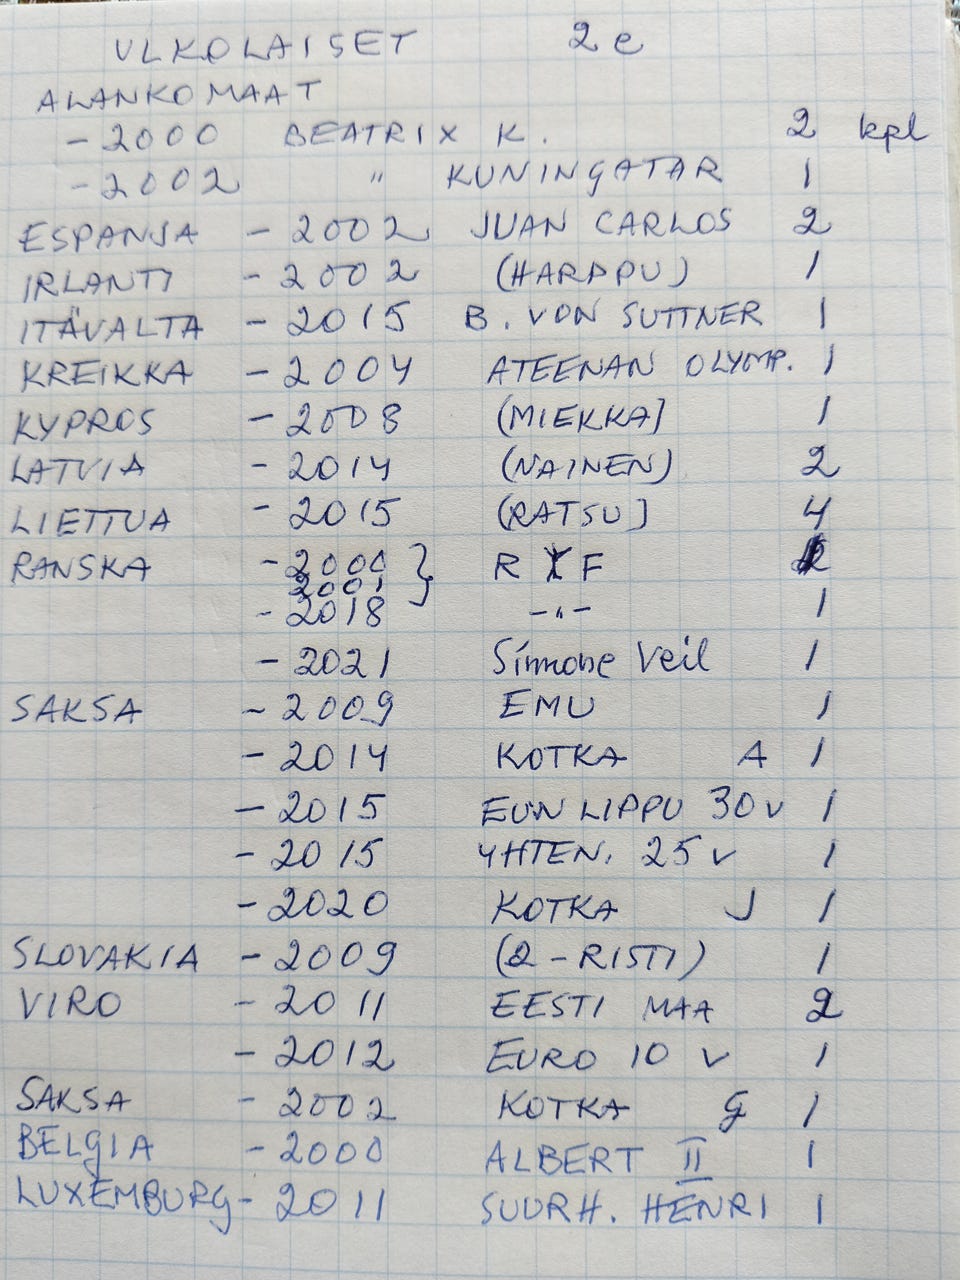 ULKOLAISET 2 e
ALANKOMAAT
- 2000 BEATRIX K. 2 kpl
- 2002 " KUNINGATAR 1
ESPANJA - 2002 JUAN CARLOS 2
IRLANTI - 2002 (HARPPU) 1
ITÄVALTA - 2015 B. VON SUTTNER 1
KREIKKA - 2004 ATEENAN OLYMP. 1
KYPROS - 2008 (MIEKKA) 1
LATVIA - 2014 (NAINEN) 2
LIETTUA - 2015 (RATSU) 4
RANSKA - 2000 } R F 2
2001
- 2018 -"- 1
- 2021 Simone Veil 1
SAKSA - 2009 EMU 1
- 2014 KOTKA A 1
- 2015 EU:N LIPPU 30 v 1
- 2015 YHTEN. 25 v 1
- 2020 KOTKA J 1
SLOVAKIA - 2009 (2-RISTI) 1
VIRO - 2011 EESTI MAA 2
- 2012 EURO 10 v 1
SAKSA - 2002 KOTKA G 1
BELGIA - 2000 ALBERT II 1
LUXEMBURG - 2011 SUURH. HENRI 1